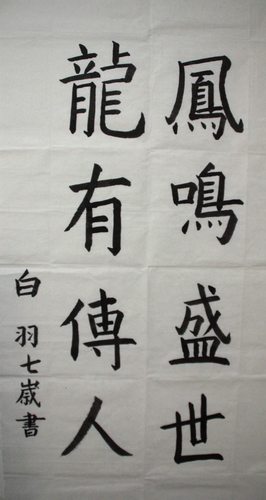 鳳鳴盛世
龍有傳人
白羽七歲書